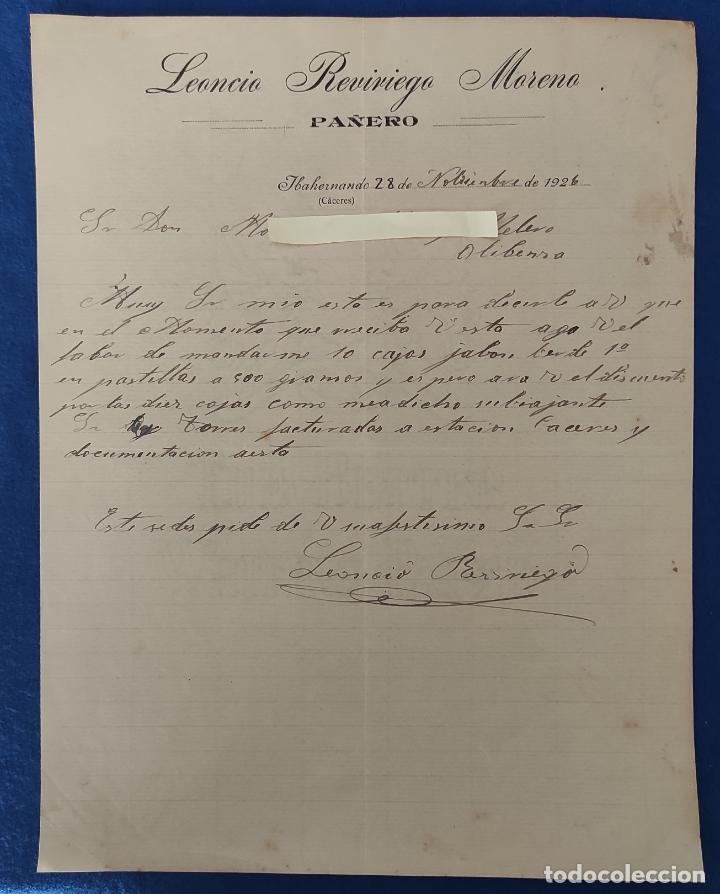 Leoncio Reviriego Moreno.
PAÑERO
Ibahernando 28 de Nobienbre de 1926
(Cáceres)
Sr Don Mo
Olibensa
Muy Sr mio esta es para decirle a V que
en el Momento que reciba V esta ago V el
fabor de mandarme 10 cajas jabon berde 1ª
en pastillas a 500 gramos y espero ara V el discuento
por las diez cajas como meadicho subiajante
Sr Torres facturadas a estacion Caceres y
documentacion aesta
Este sedes pide de V suafestisimo Sr Sr
Leoncio Reviriego
todocoleccion